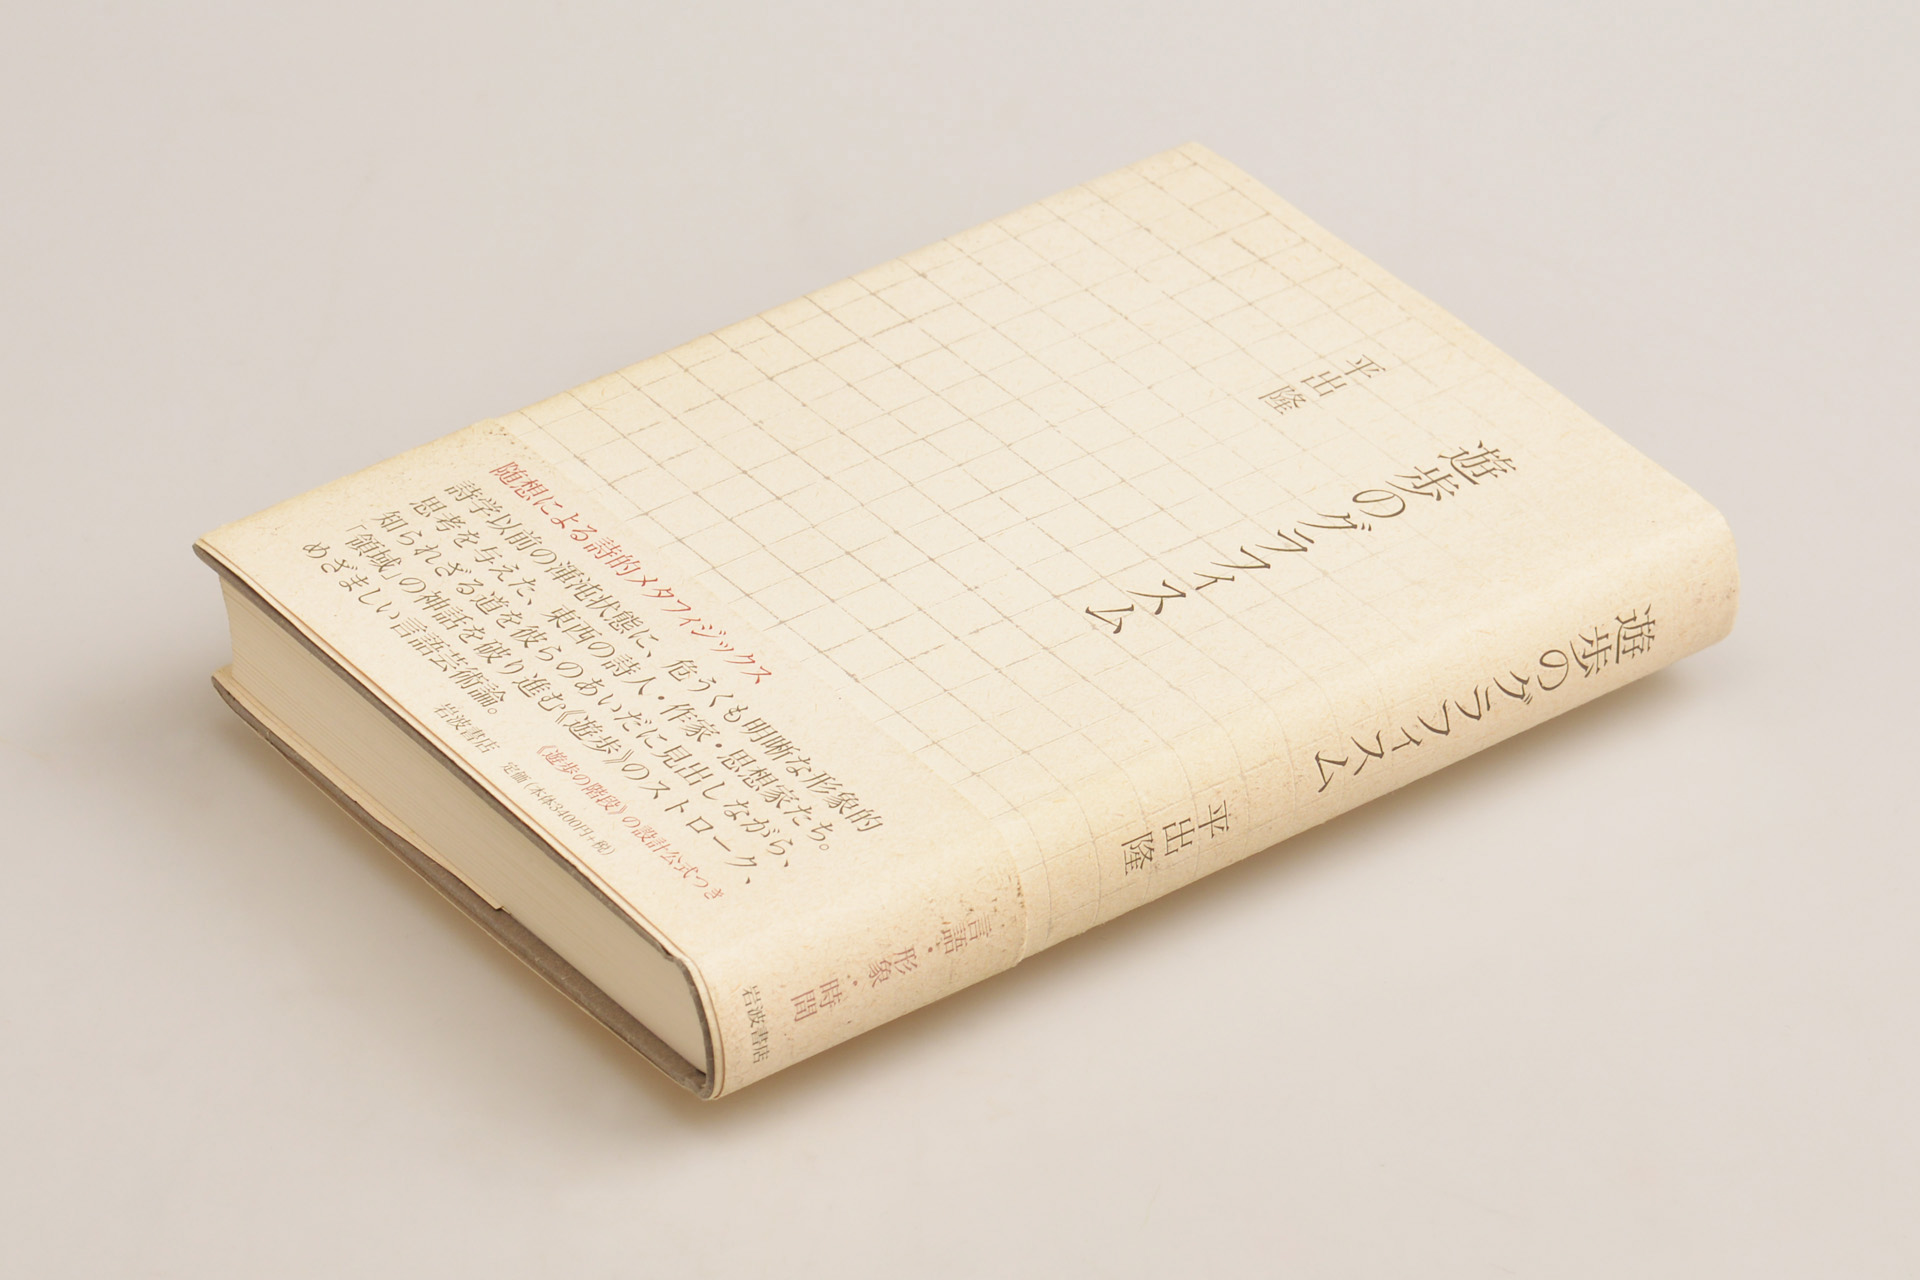 遊歩のグラフィスム
平出隆
随想による詩的メタフィジックス
詩学以前の渾沌状態に、危うくも明晰な形象的
思考を与えた、東西の詩人・作家・思想家たち。
知られざる道を彼らのあいだに見出しながら、
「領域」の神話を破り進む《遊歩》のストローク、
めざましい言語芸術論。
《遊歩の階段》の設計公式つき
岩波書店
定価(本体3400円+税)
遊歩のグラフィスム
平出隆
言語・形象・時間
岩波書店